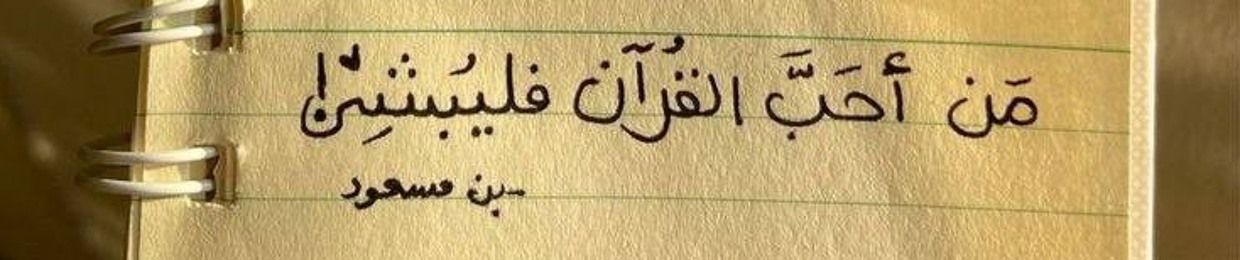 مَن أحَبَّ القُرآن فليُبشِّر!
-بن مسعود